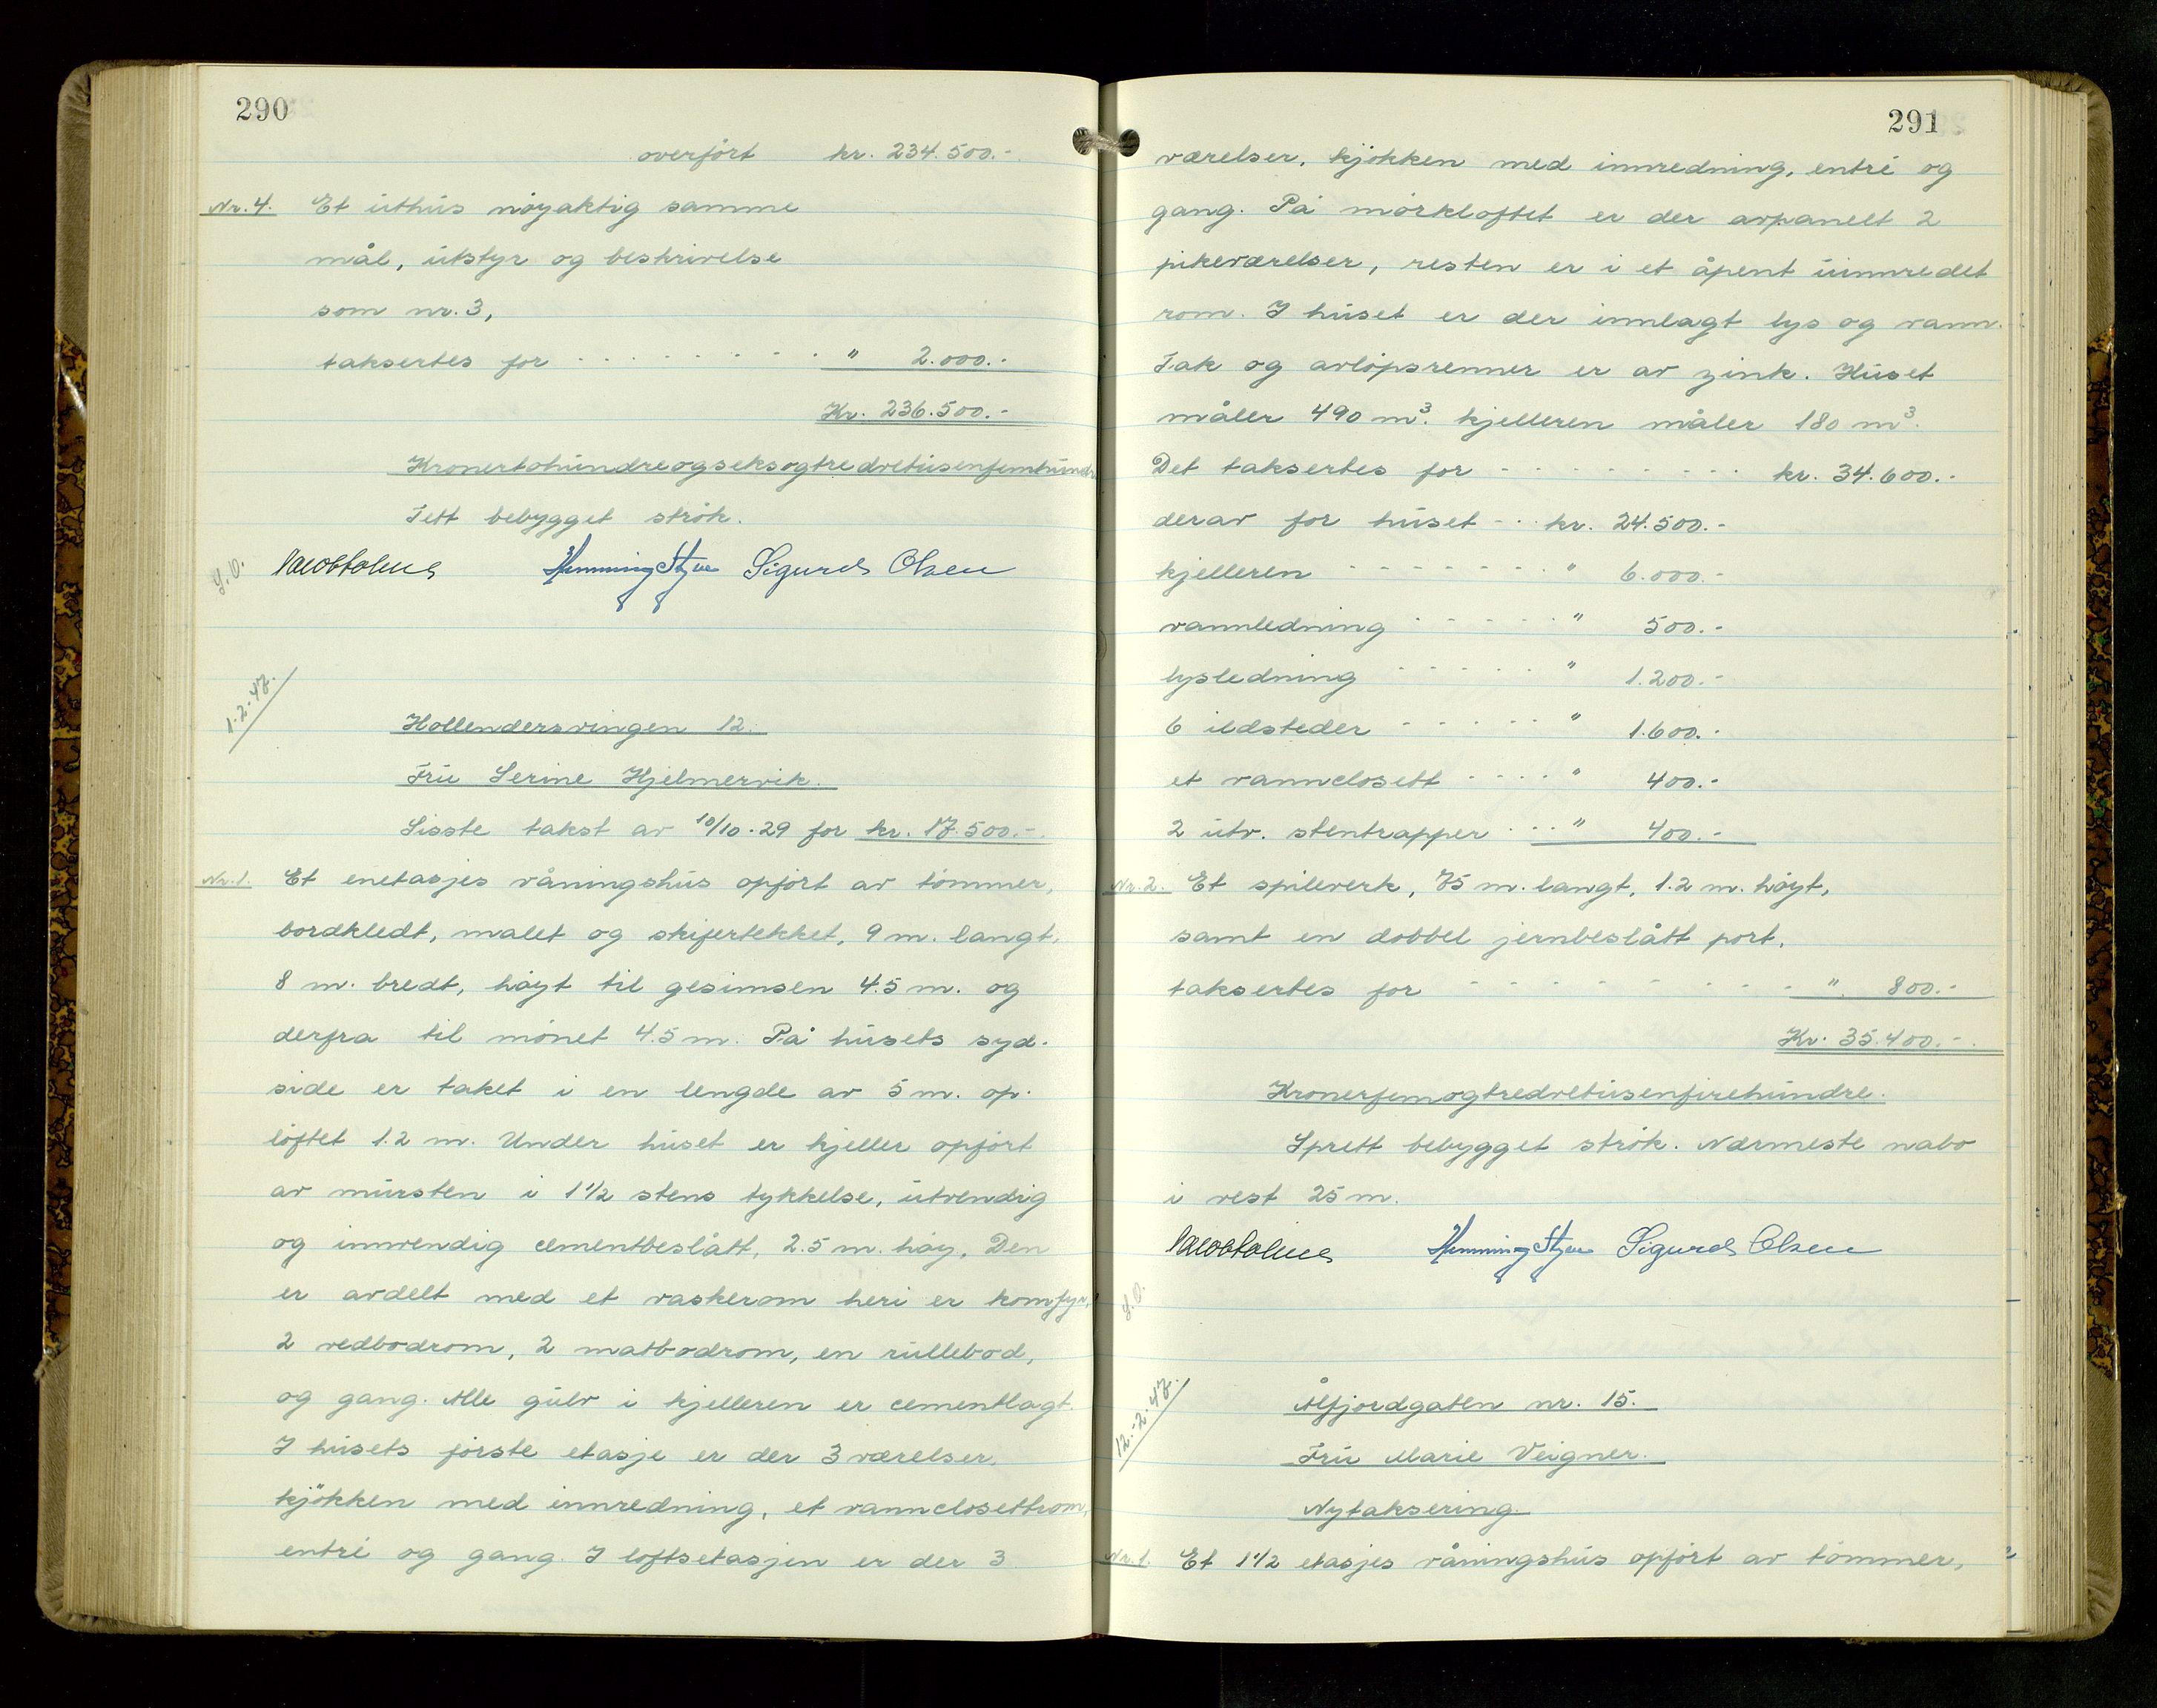 290
overført kr. 234.500.-
Nr. 4. Et uthus nøyaktig samme
mål, utstyr og beskrivelse
som nr. 3,
taksertes for - - - - - - - - - " 2.000.-
Kr. 236.500.-
Kronertohundreogseksogtredvetusenfemhundre
Tett bebygget strøk.
S.O.
Henning Styve Sigurd Olsen
1.2.-47.
Hollendersvingen 12.
Fru Serine Hjelmervik.
Sisste takst av 10/10-29 for kr. 17.500.-
Nr. 1. Et enetasjes våningshus opført av tømmer,
bordkledt, malet og skifertekket, 9 m. langt,
8 m. bredt, høyt til gesimsen 4.5 m. og
derfra til mønet 4.5 m. På husets syd-
side er taket i en lengde av 5 m. op-
løftet 1.2 m. Under huset er kjeller opført
av mursten i 1 1/2 stens tykkelse, utvendig
og innvendig cementbeslått, 2.5 m. høy. Den
er avdelt med et vaskerom heri er komfyr,
2 vedbodrom, 2 matbodrom, en rullebod,
og gang. Alle gulv i kjelleren er cementlagt.
I husets første etasje er der 3 værelser,
kjøkken med innredning, et vannclosettrom,
entré og gang. I loftsetasjen er der 3
291
værelser, kjøkken med innredning, entré og
gang. På mørkloftet er der avpanelt 2
pikeværelser, resten er i et åpent uinnredet
rom. I huset er der innlagt lys og vann.
Tak og avløpsrenner er av zink. Huset
måler 490 m³. kjelleren måler 180 m³.
Det taksertes for - - - - - - - - - kr. 34.600.-
derav for huset - - - kr. 24.500.-
kjelleren - - - - - - - " 6.000.-
vannledning - - - - - - " 500.-
lysledning - - - - - - " 1.200.-
6 ildsteder - - - - - " 1.600.-
et vannclosett - - - - " 400.-
2 utv. stentrapper - - - " 400.-
Nr. 2. Et spilverk, 75 m. langt, 1.2 m. høyt,
samt en dobbel jernbeslått port,
taksertes for - - - - - - - - - - " 800.-
Kr. 35.400.-
Kronerfemogtredvetusenfirehundre.
Sprett bebygget strøk. Nærmeste nabo
i vest 25 m.
Henning Styve Sigurd Olsen
S.O.
12.-2.-47.
Ålfjordgaten nr. 15.
Fru Marie Veigner.
Nytaksering.
Nr. 1. Et 1 1/2 etasjes våningshus opført av tømmer,